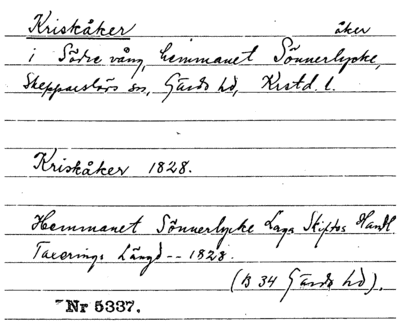 Kriskåker åker
i Södre vång, hemmanet Sönnerlycke,
Skepparslövs sn, Gärds hd, Krstd. l.
Kriskåker 1828.
Hemmanet Sönnerlycke Laga Skiftes Handl.
Taxerings Längd -- 1828.
(B 34 Gärds hd).
Nr 5337.